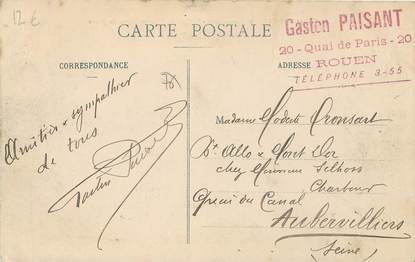 12 €
CARTE POSTALE
Gaston PAISANT
20 - Quai de Paris - 20
ROUEN
TÉLÉPHONE 3-55
CORRESPONDANCE
ADRESSE
Amitiés & sympathies
de tous
Gaston Paisant
Madame Modeste Cronsart
Bt Allo & Mont d'Or
chez Monsieur
Charbons
Quai du Canal
Aubervilliers
(Seine)